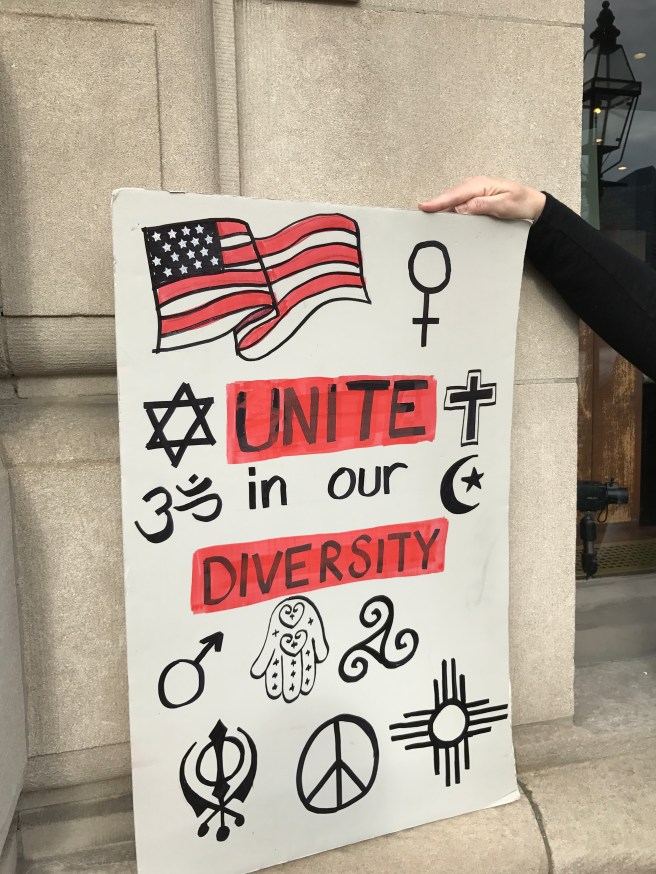 UNITE
in our
DIVERSITY